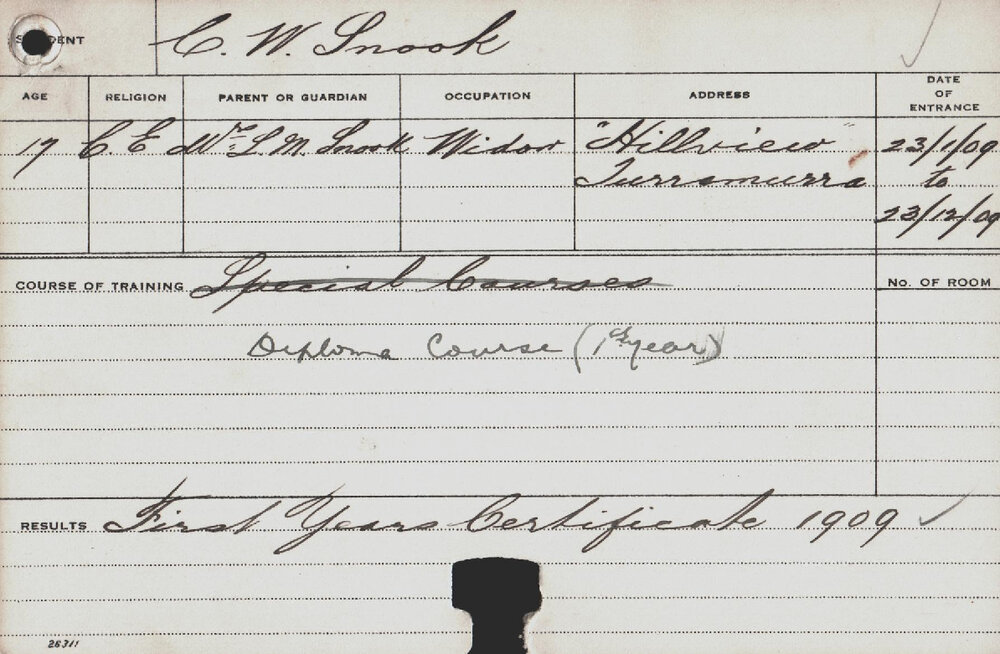 STUDENT C. W. Snook
AGE RELIGION PARENT OR GUARDIAN OCCUPATION ADDRESS DATE OF ENTRANCE
17 C E Mrs L. M. Snook Widow "Hillview" 23/1/09
Turramurra to
23/12/09
COURSE OF TRAINING Special Courses No. OF ROOM
Diploma Course (1st year)
RESULTS First Years Certificate 1909
26311